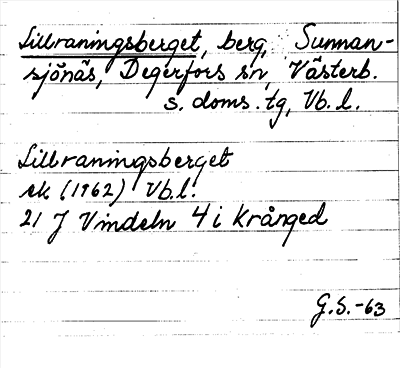 Lillraningsberget, berg, Sunnan-
sjönäs, Degerfors sn, Västerb.
s. doms. tg, Vb. l.
Lillraningsberget
ek (1962) Vb. l.
21 J Vindeln 4 i Krånged
G.S. -63